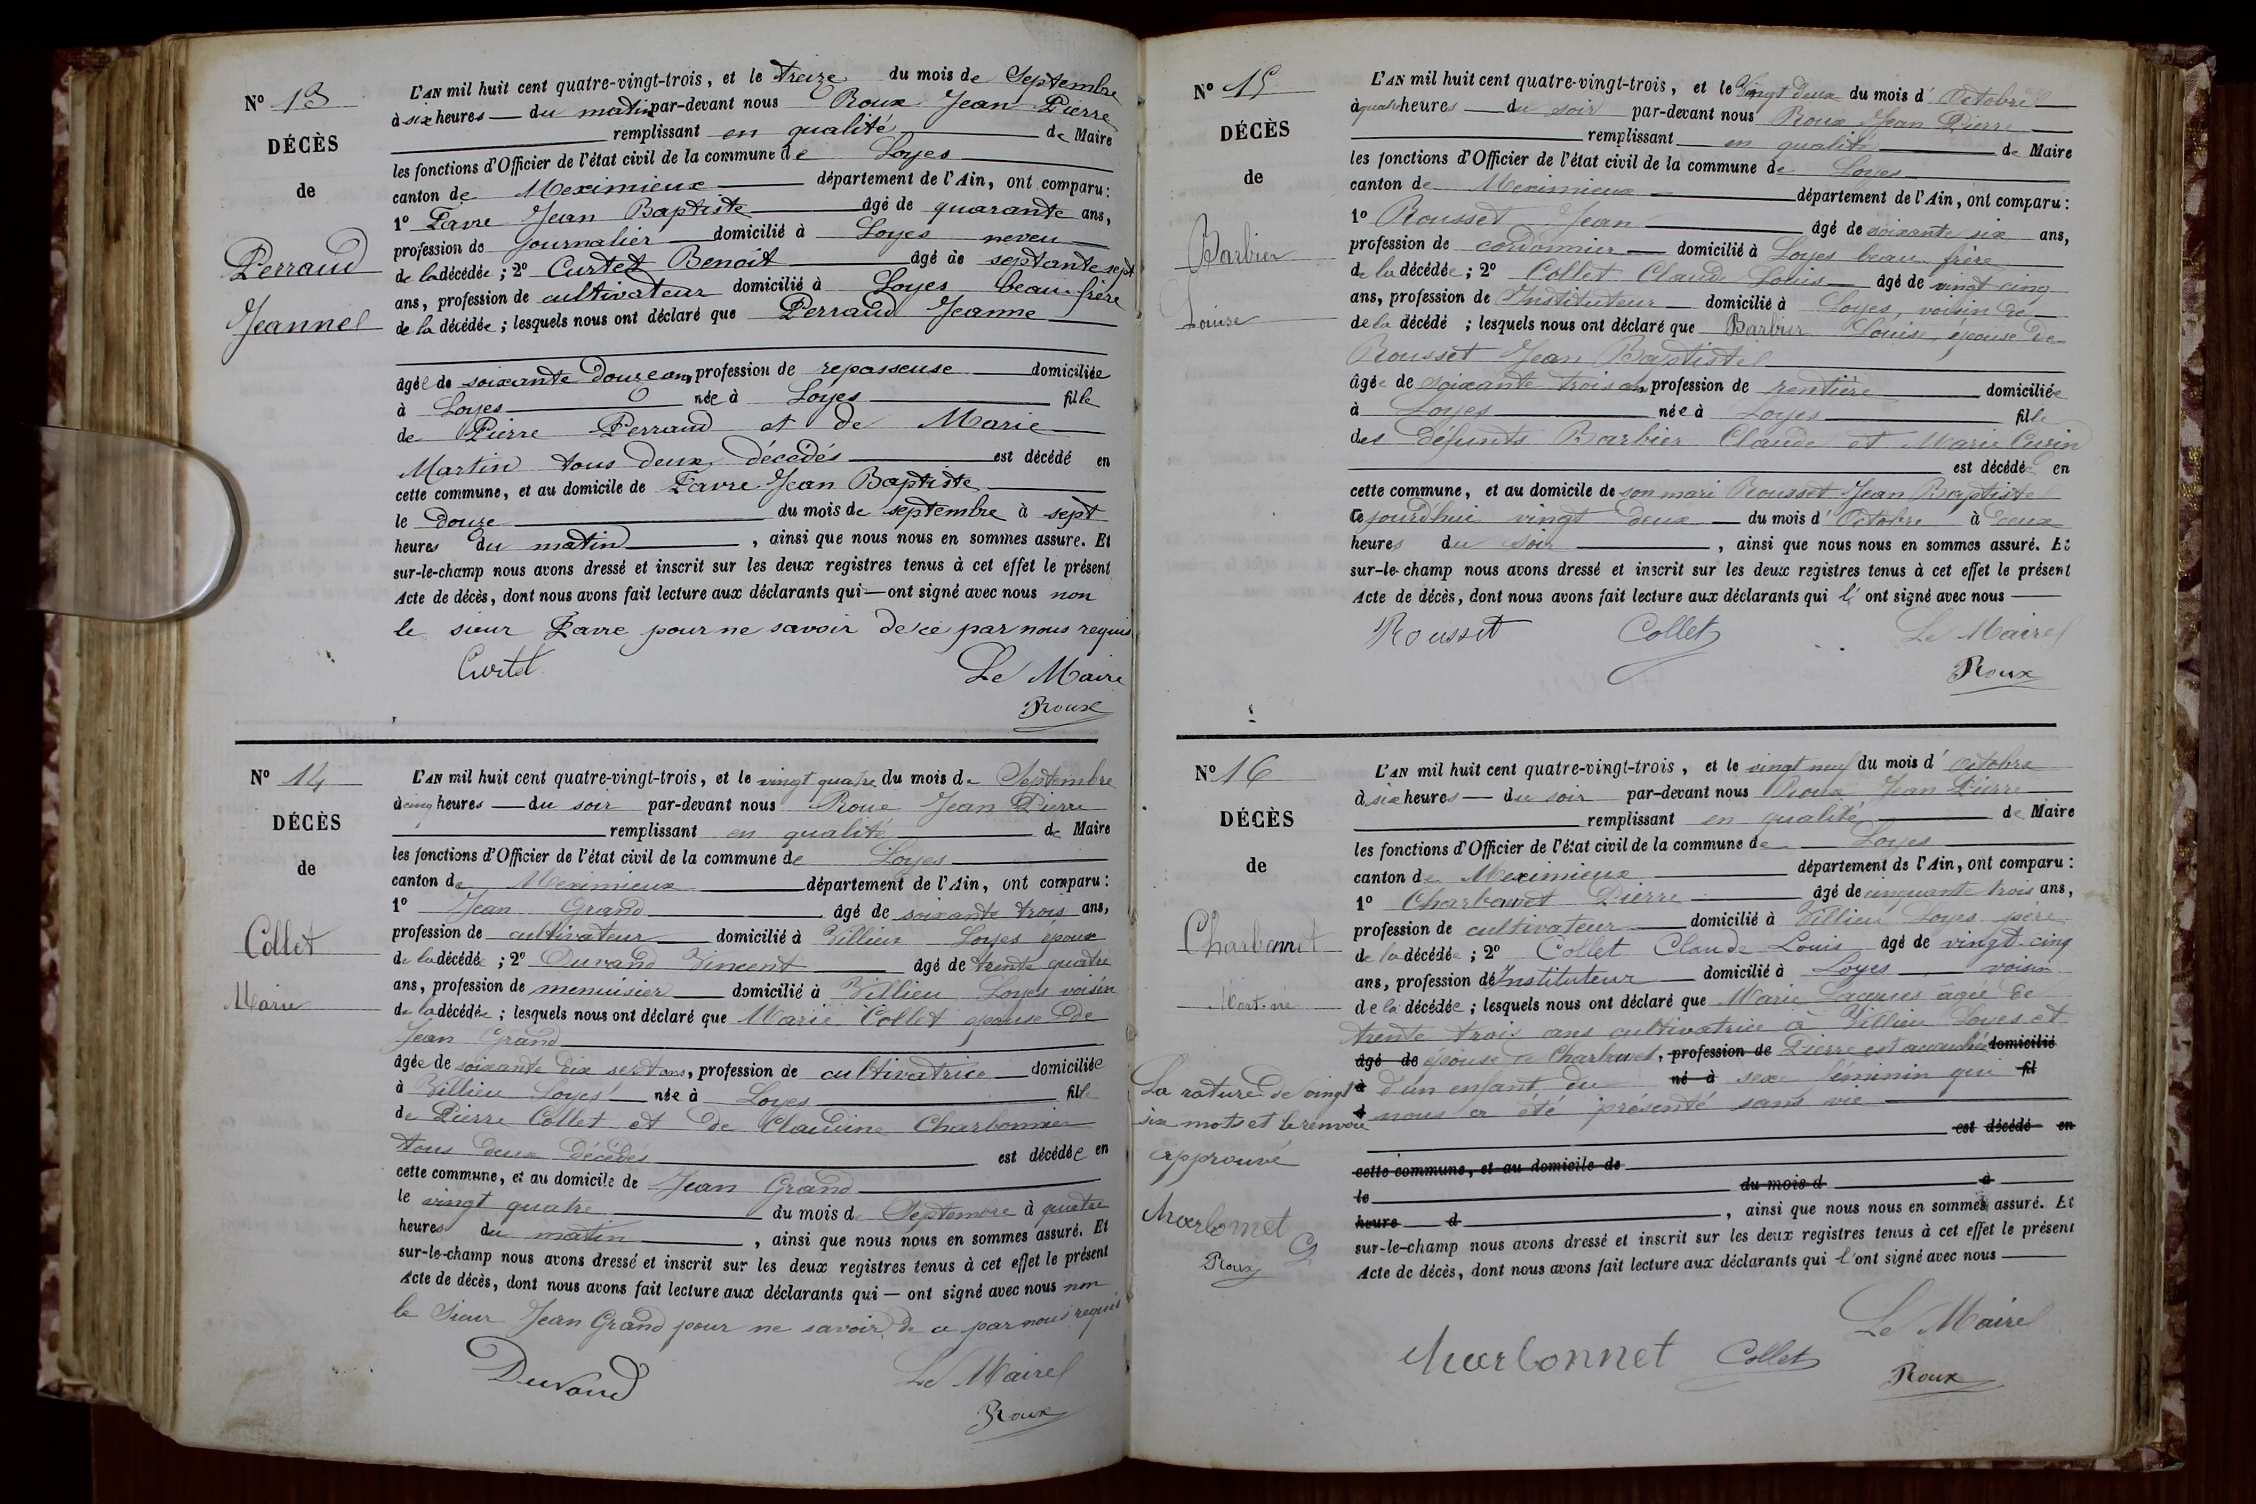 N° 13
DÉCÈS
de
Perraud
Jeanne
L'AN mil huit cent quatre-vingt-trois, et le treize du mois de Septembre
à six heures — du matin par-devant nous Roux Jean Pierre
remplissant en qualité de Maire
les fonctions d'Officier de l'état civil de la commune de Loyes
canton de Meximieux département de l'Ain, ont comparu :
1° Favre Jean Baptiste âgé de quarante ans,
profession de journalier domicilié à Loyes neveu
de la décédée ; 2° Curtet Benoit âgé de septante sept
ans, profession de cultivateur domicilié à Loyes beau-frère
de la décédée ; lesquels nous ont déclaré que Perraud Jeanne
âgée de soixante douze ans, profession de repasseuse domiciliée
à Loyes née à Loyes fille
de Pierre Perraud et de Marie
Martin tous deux décédés est décédé en
cette commune, et au domicile de Favre Jean Baptiste
le douze du mois de septembre à sept
heures du matin, ainsi que nous nous en sommes assuré. Et
sur-le-champ nous avons dressé et inscrit sur les deux registres tenus à cet effet le présent
Acte de décès, dont nous avons fait lecture aux déclarants qui — ont signé avec nous non
le sieur Favre pour ne savoir de ce par nous requis
Curtet Le Maire
Roux
N° 14
DÉCÈS
de
Collet
Marie
L'AN mil huit cent quatre-vingt-trois, et le vingt quatre du mois de Septembre
à cinq heures — du soir par-devant nous Roux Jean Pierre
remplissant en qualité de Maire
les fonctions d'Officier de l'état civil de la commune de Loyes
canton de Meximieux département de l'Ain, ont comparu :
1° Jean Grand âgé de soixante trois ans,
profession de cultivateur domicilié à Villieu Loyes époux
de la décédée ; 2° Durand Vincent âgé de trente quatre
ans, profession de menuisier domicilié à Villieu Loyes voisin
de la décédée ; lesquels nous ont déclaré que Marie Collet épouse de
Jean Grand
âgée de soixante dix sept ans, profession de cultivatrice domiciliée
à Villieu Loyes née à Loyes fille
de Pierre Collet et de Claudine Charbonnier
tous deux décédés est décédée en
cette commune, et au domicile de Jean Grand
le vingt quatre du mois de Septembre à quatre
heures du matin, ainsi que nous nous en sommes assuré. Et
sur-le-champ nous avons dressé et inscrit sur les deux registres tenus à cet effet le présent
Acte de décès, dont nous avons fait lecture aux déclarants qui — ont signé avec nous non
le Sieur Jean Grand pour ne savoir de ce par nous requis
Durand Le Maire
Roux
N° 15
DÉCÈS
de
Barbier
Louise
L'AN mil huit cent quatre-vingt-trois, et le Vingt deux du mois d'Octobre
à quatre heures — du soir par-devant nous Roux Jean Pierre
remplissant en qualité de Maire
les fonctions d'Officier de l'état civil de la commune de Loyes
canton de Meximieux département de l'Ain, ont comparu :
1° Rousset Jean âgé de soixante six ans,
profession de cordonnier domicilié à Loyes beau-frère
de la décédée ; 2° Collet Claude Louis âgé de vingt cinq
ans, profession de Instituteur domicilié à Loyes, voisin de
de la décédé ; lesquels nous ont déclaré que Barbier Louise, épouse de
Rousset Jean Baptiste
âgée de soixante trois ans profession de rentière domiciliée
à Loyes née à Loyes fille
des défunts Barbier Claude et Marie Curin
est décédé en
cette commune, et au domicile de son mari Rousset Jean Baptiste
Cejourd'hui vingt deux du mois d'Octobre à deux
heures du soir, ainsi que nous nous en sommes assuré. Et
sur-le-champ nous avons dressé et inscrit sur les deux registres tenus à cet effet le présent
Acte de décès, dont nous avons fait lecture aux déclarants qui l'ont signé avec nous
Rousset Collet Le Maire
Roux
N° 16
DÉCÈS
de
Charbonnet
Mort-né
L'AN mil huit cent quatre-vingt-trois, et le vingt neuf du mois d'Octobre
à six heures — du soir par-devant nous Roux Jean Pierre
remplissant en qualité de Maire
les fonctions d'Officier de l'état civil de la commune de Loyes
canton de Meximieux département de l'Ain, ont comparu :
1° Charbonnet Pierre âgé de cinquante trois ans,
profession de cultivateur domicilié à Villieu Loyes père
de la décédée ; 2° Collet Claude Louis âgé de vingt-cinq
ans, profession de Instituteur domicilié à Loyes, voisin
de la décédée ; lesquels nous ont déclaré que Marie âgée de
trente trois ans cultivatrice à Villieu Loyes et
âgé de épouse de Charbonnet, profession de Pierre est accouchée domicilié
à d'un enfant du né à sexe féminin qui fil
d nous a été présenté sans vie
est décédé en
cette commune, et au domicile de
le du mois d à
heure d, ainsi que nous nous en sommes assuré. Et
sur-le-champ nous avons dressé et inscrit sur les deux registres tenus à cet effet le présent
Acte de décès, dont nous avons fait lecture aux déclarants qui l'ont signé avec nous
La rature de vingt
six mots et le renvoi
approuvé
Charbonnet
Roux
Le Maire
Charbonnet Collet
Roux